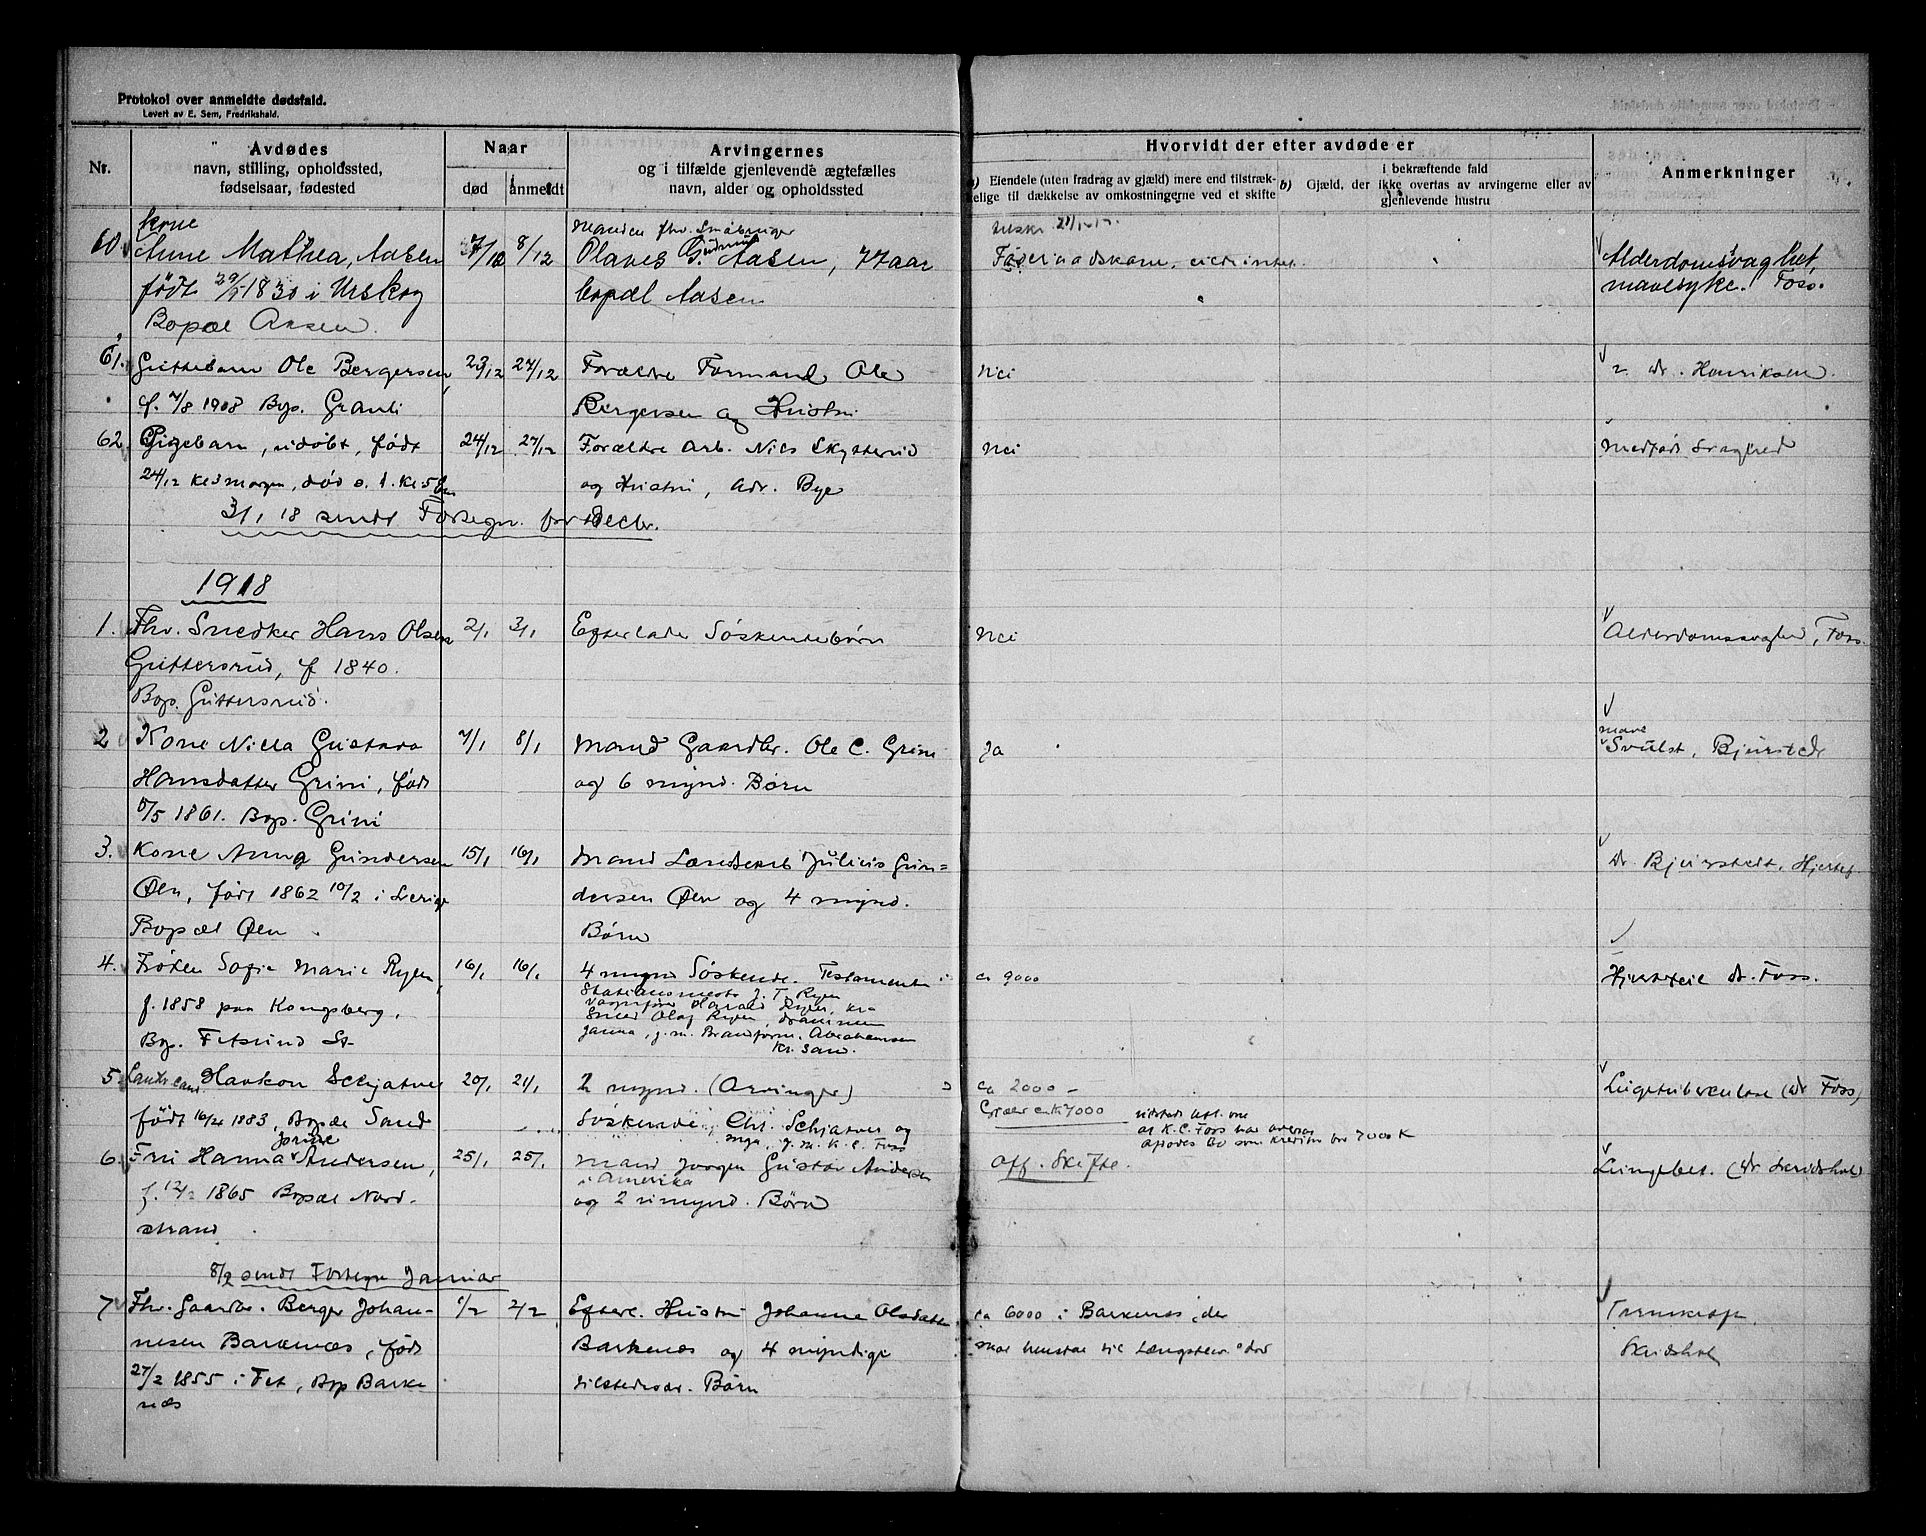 Protokol over anmeldte dødsfald.
Levert av E. Sem, Fredrikshald.
Nr.
Avdødes
navn, stilling, opholdssted,
fødselsaar, fødested
Naar
død
anmeldt
Arvingernes
og i tilfælde gjenlevende ægtefælles
navn, alder og opholdssted
Hvorvidt der efter avdøde er
a) Eiendele (uten fradrag av gjæld) mere end tilstræk-
kelige til dækkelse av omkostningerne ved et skifte
i bekræftende fald
b) Gjæld, der ikke overtas av arvingerne eller av
gjenlevende hustru
Anmerkninger
60. Kone
Anne Mathea Aasen
født 29/ 1830 i Urskog
Bopæl Aasen.
7/12 8/12
Manden fhv. Småbruger
Olaves Aasen, 77 aar
bopæl Aasen
Føderaadskone, eiet intet.
Alderdomsvaghet,
mavesyke. Foss.
61. Guttebarn Ole Bergersen,
f. 7/8 1908 Bop. Granli
23/12 27/12
Forældre Formand Ole
Bergersen og Hustru
Nei
Dr. Henriksen.
62. Pigebarn, udøbt, født
24/12 kl 3 morgen, død s. d. kl 5 Em
24/12 27/12
Forældre Arb. Nils Skytterud
og Hustru, Adr. Bye
Nei
Medfødt Svaghed
3/1 18 sendt Fortegn. for Decbr.
1918
1. Fhv. Snedker Hans Olsen
Guttersrud, f 1840.
Bop. Guttersrud.
2/1 3/1
Efterlader Søskendebørn
Nei
Alderdomssvaghed, Foss.
2 Kone Nilla Gustava
Hansdatter Grini, født
5/5 1861. Bop. Grini
7/1 8/1
Mand Gaardbr. Ole C. Grini
og 6 mynd. Børn
Ja
mave
Svulst, Bjurstedt
3. Kone Anna Gundersen
Øen, født 1862 10/2 i Sverige
Bopæl Øen
15/1 16/1
Mand Landsekt Julius Gun-
dersen Øen og 4 mynd.
Børn
Dr. Bjurstedt, Hjertef.
4. Frøken Sofie Marie Ryen,
f. 1858 paa Kongsberg,
Bop. Fetsund St
16/1 16/1
4 mynd Søskende. Testamente
Stationsmester J. T. Ryen
Vognfører Harald Ryen, Kr-
Smed Olaf Ryen, Drammen
Janna, g. m. Brandform. Abrahamsen
Kr. sand.
ca 9000
Hjertefeil Dr. Foss.
5. Haakon Schjatvet
født 16/4 1883, Bopæl Sand
20/1 21/1
2 mynd. (Arvinger)
Søskende, Chr. Schjatvet og
g. m. K. C. Foss
ca 2000 –
Gjæld ca K 7000
at K. C. Foss har overtat
afdødes Bo som kreditor for 7000 K
Lugetuberculose (Dr Foss)
6. Fru Hanna Andersen,
f. 12/2 1865 Bopæl Nord-
strand
25/1 25/1
Mand Jørgen Gustav Andersen
i Amerika
og 2 umynd. Børn
Off. Skifte.
Lungebet. (Dr Skridshol)
8/2 sendt Fortegn Januar
7 Fhv. Gaardbr. Berger Johan-
nesen Barkenæs, født
27/2 1855 i Fet, Bop Barke-
næs
1/2 2/2
Efterl. Hustru Johanne Olsdatter
Barkenæs og 4 myndige
tilstedevær. Børn
ca 6000 i Barkenæs, der
skal henstaa til Længstlev. død
Tarmkræft.
Skridshol